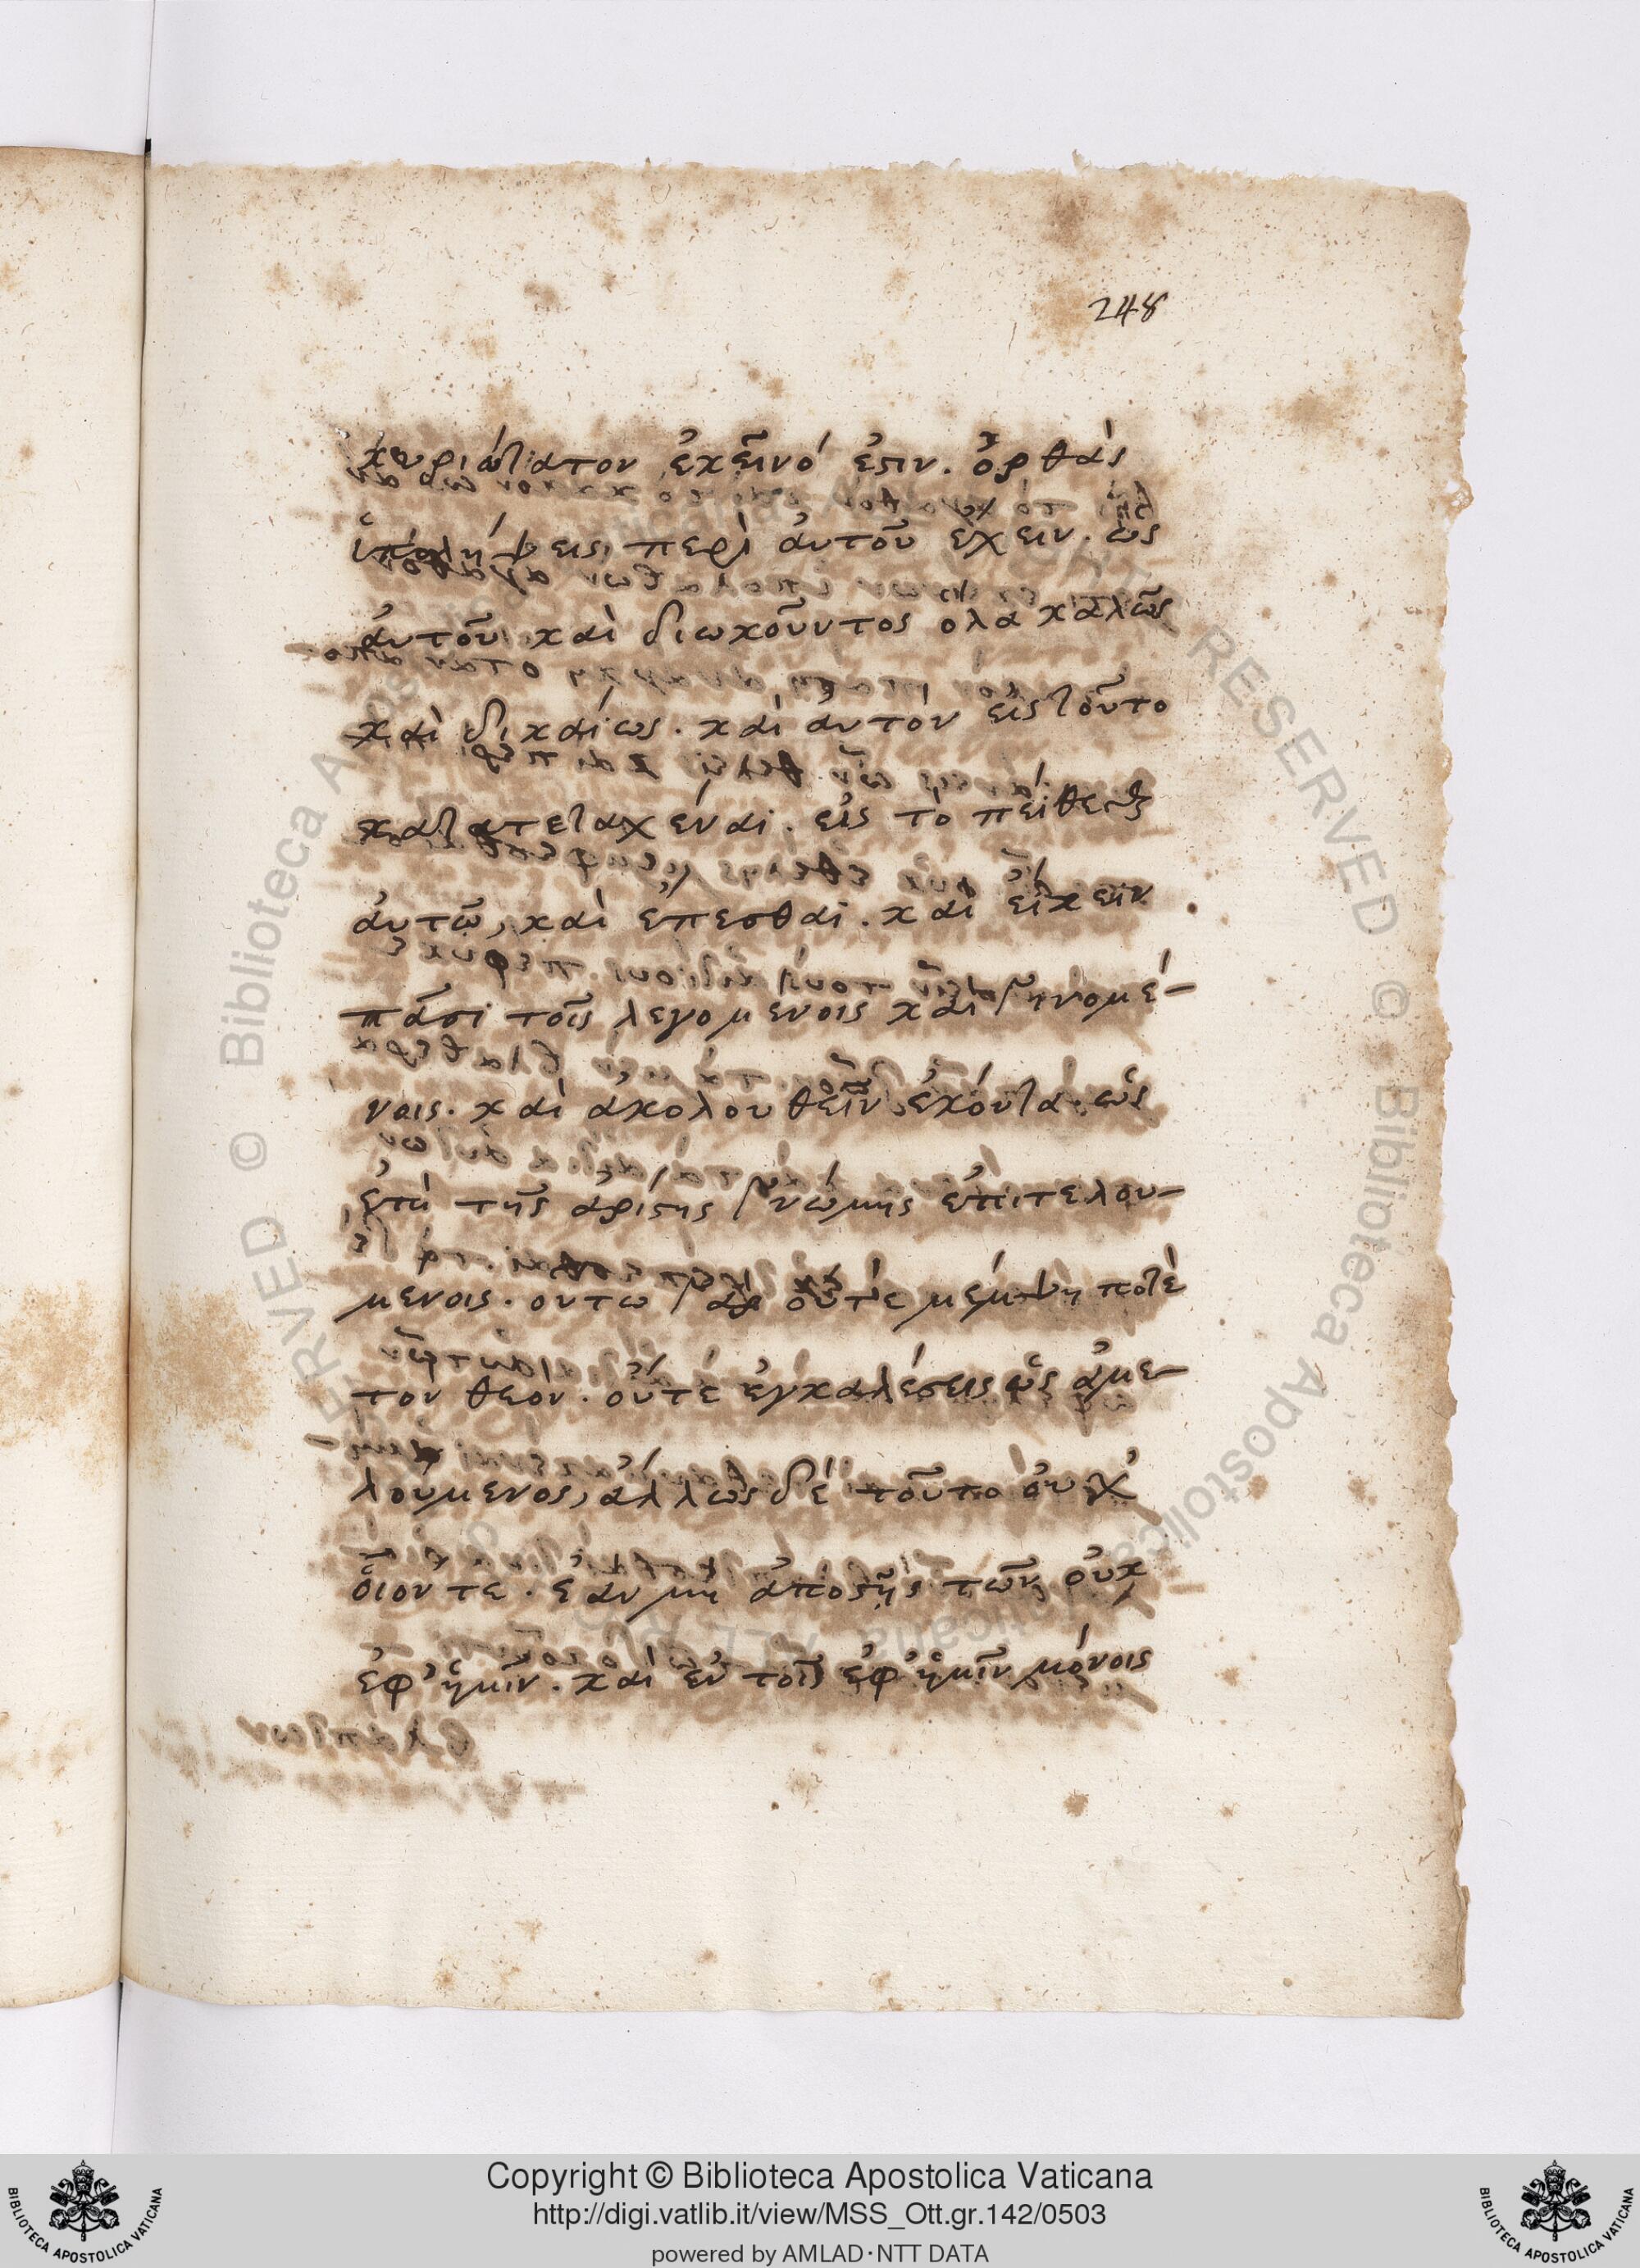 248
κυριώτατον ἐκεῖνό ἐστιν. ὀρθὰς
ὑπολήψεις περὶ ἀυτοῦ ἔχειν. ὡς
ἀυτοῦ καὶ διωκοῦντος ὅλα καλῶς
καὶ δικαίως. καὶ ἀυτὸν εἰς τοῦτο
κατατεταχέναι. εἰς τὸ πείθεσθαι
ἀυτῶ, καὶ ἕπεσθαι. καὶ εἴκειν
πᾶσι τοῖς λεγομένοις καὶ γινομέ-
νοις. καὶ ἀκολουθεῖν ἑκόντα. ὡς
ὑπὸ τῆς ἀρίστης γνώμης ἐπιτελου-
μένοις. ουτω γὰρ οὔτε μέμψη ποτὲ
τον θεόν. οὔτε ἐγκαλέσεις ὡς ἀμε-
λούμενος, ἄλλως δὲ τοῦτο ὀυχ
οἷον τε. ἐὰν μὴ ἀποστῆς τῶν οὐκ
ἐφ' ἡμῖν. καὶ ἐν τοῖς ἐφ' ἡμῖν μόνοις
Copyright © Biblioteca Apostolica Vaticana
http://digi.vatlib.it/view/MSS_Ott.gr.142/0503
powered by AMLAD·NTT DATA
BIBLIOTECA APOSTOLICA VATICANA
BIBLIOTECA APOSTOLICA VATICANA